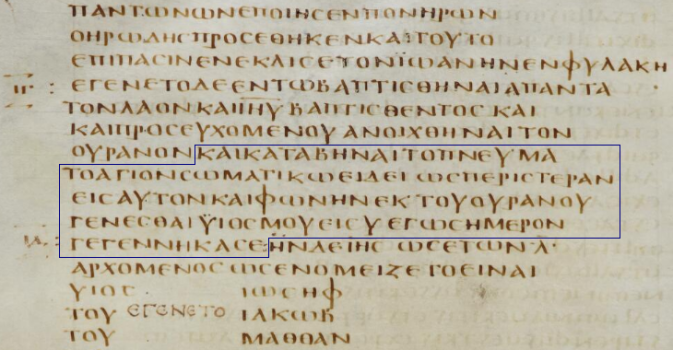 ΠΑΝΤΩΝΩΝΕΠΟΙΗϹΕΝΠΟΝΗΡΩΝ
ΟΗΡΩΔΗϹΠΡΟϹΕΘΗΚΕΝΚΑΙΤΟΥΤΟ
ΕΠΙΠΑϹΙΝΕΝΕΚΛΙϹΕΤΟΝΪΩΑΝΗΝΕΝΦΥΛΑΚΗ
ΕΓΕΝΕΤΟΔΕΕΝΤΩΒΑΠΤΙϹΘΗΝΑΙΑΠΑΝΤΑ
ΤΟΝΛΑΟΝΚΑΙΙΗΥΒΑΠΤΙϹΘΕΝΤΟϹΚΑΙ
ΚΑΙΠΡΟϹΕΥΧΟΜΕΝΟΥΑΝΟΙΧΘΗΝΑΙΤΟΝ
ΟΥΡΑΝΟΝΚΑΙΚΑΤΑΒΗΝΑΙΤΟΠΝΕΥΜΑ
ΤΟΑΓΙΟΝϹΩΜΑΤΙΚΩΕΙΔΕΙΩϹΠΕΡΙϹΤΕΡΑΝ
ΕΙϹΑΥΤΟΝΚΑΙΦΩΝΗΝΕΚΤΟΥΟΥΡΑΝΟΥ
ΓΕΝΕϹΘΑΙΫΙΟϹΜΟΥΕΙϹΥΕΓΩϹΗΜΕΡΟΝ
ΓΕΓΕΝΝΗΚΑϹΕ:ΗΝΔΕΙΗϹΩϹΕΤΩΝ·Λ·
ΑΡΧΟΜΕΝΟϹΩϹΕΝΟΜΕΙΖΕΤΟΕΙΝΑΙ
ΥΙΟϹ ΙΩϹΗΦ
ΤΟΥ ΕΓΕΝΕΤΟ ΙΑΚΩΒ
ΤΟΥ ΜΑΘΘΑΝ